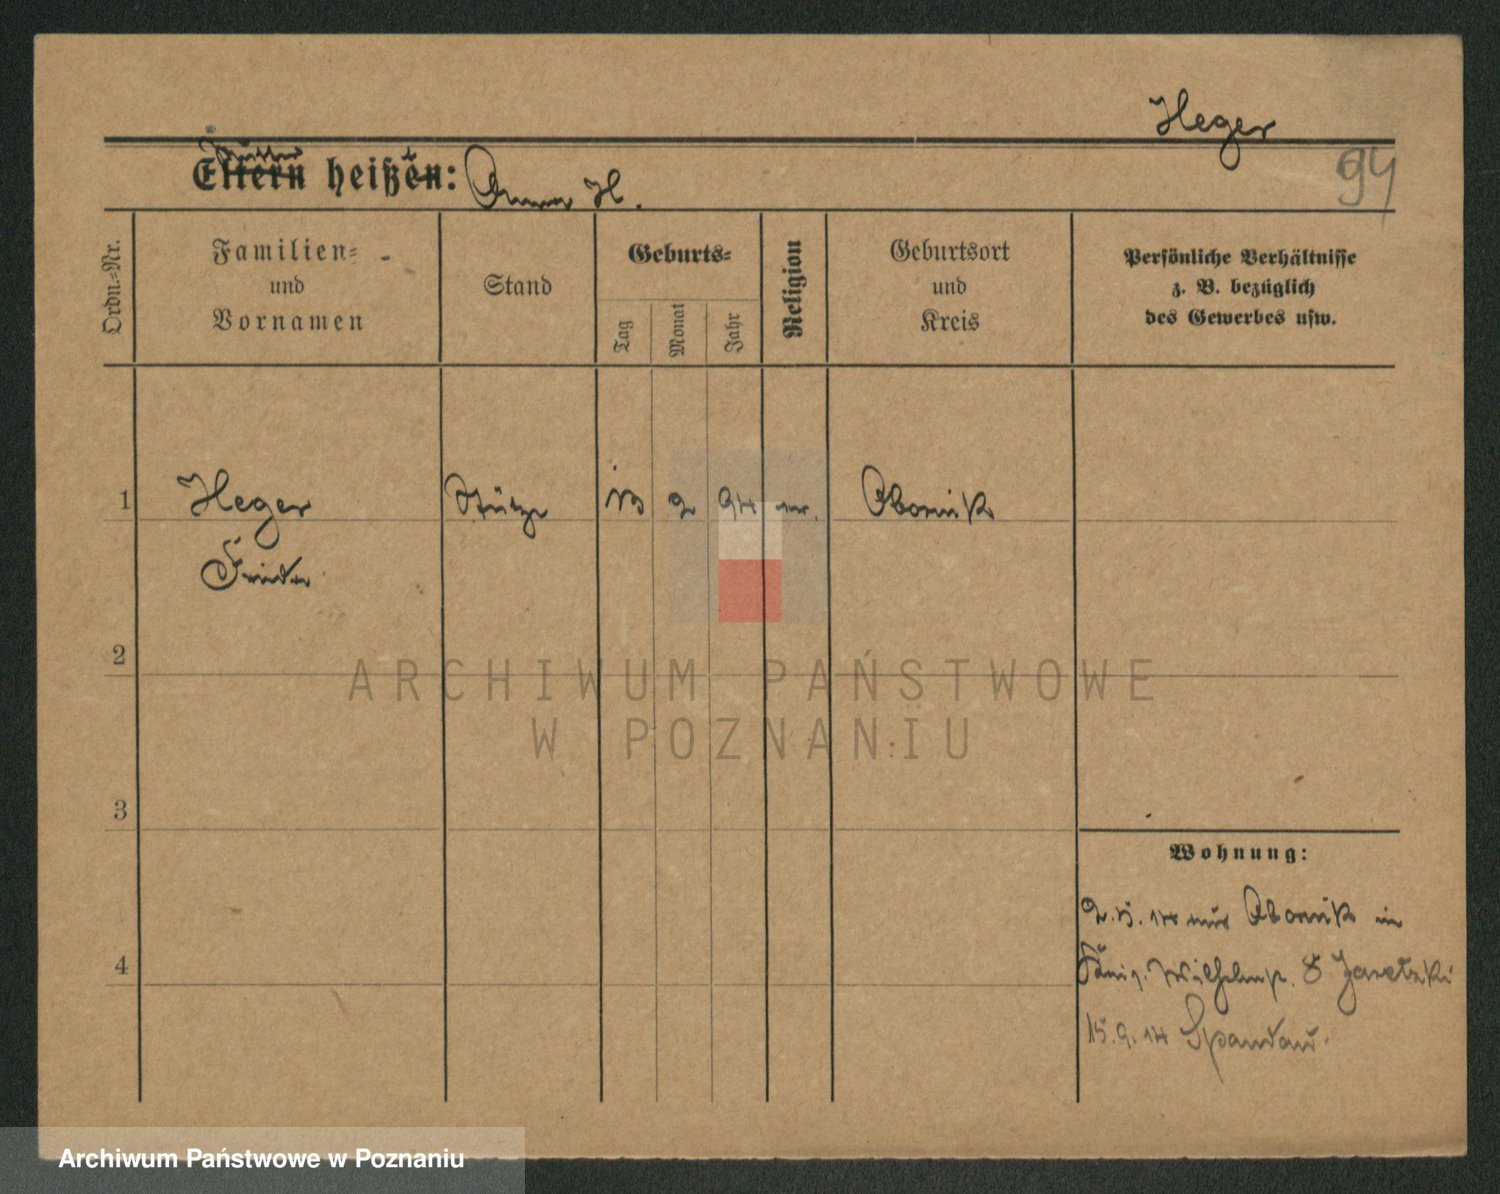 Heger
94
Mutter
Eltern heißen: Anna H.
Ordn.-Nr.
Familien-
und
Vornamen
Stand
Geburts-
Tag
Monat
Jahr
Religion
Geburtsort
und
Kreis
Persönliche Verhältnisse
z. B. bezüglich
des Gewerbes usw.
1 Heger Stütze 13 2 94 ev. Obornik
Frieda
2
3
4
ARCHIWUM PAŃSTWOWE
W POZNANIU
Wohnung:
2.5.14 aus Obornik in
König. Wilhelmstr. 8 Jaretzki
15.9.14 Spandau.
Archiwum Państwowe w Poznaniu